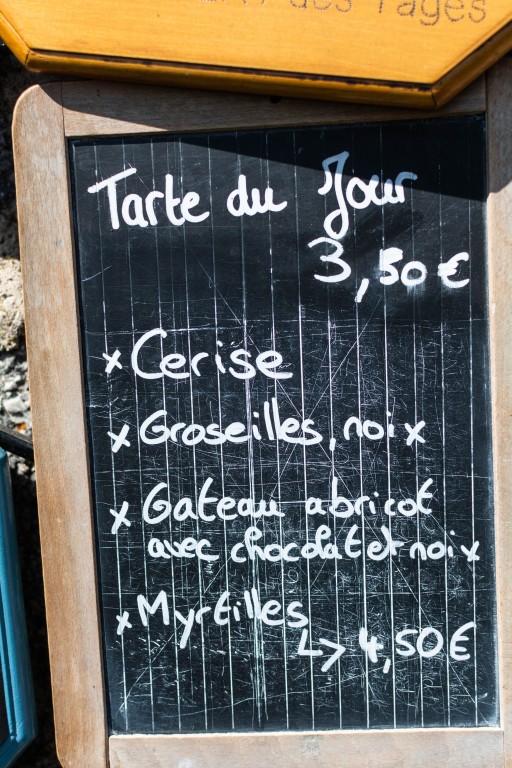 des Pages
Tarte du Jour
3,50 €
x Cerise
x Groseilles, noix
x Gateau abricot
avec chocolat et noix
x Myrtilles
↳ 4,50 €